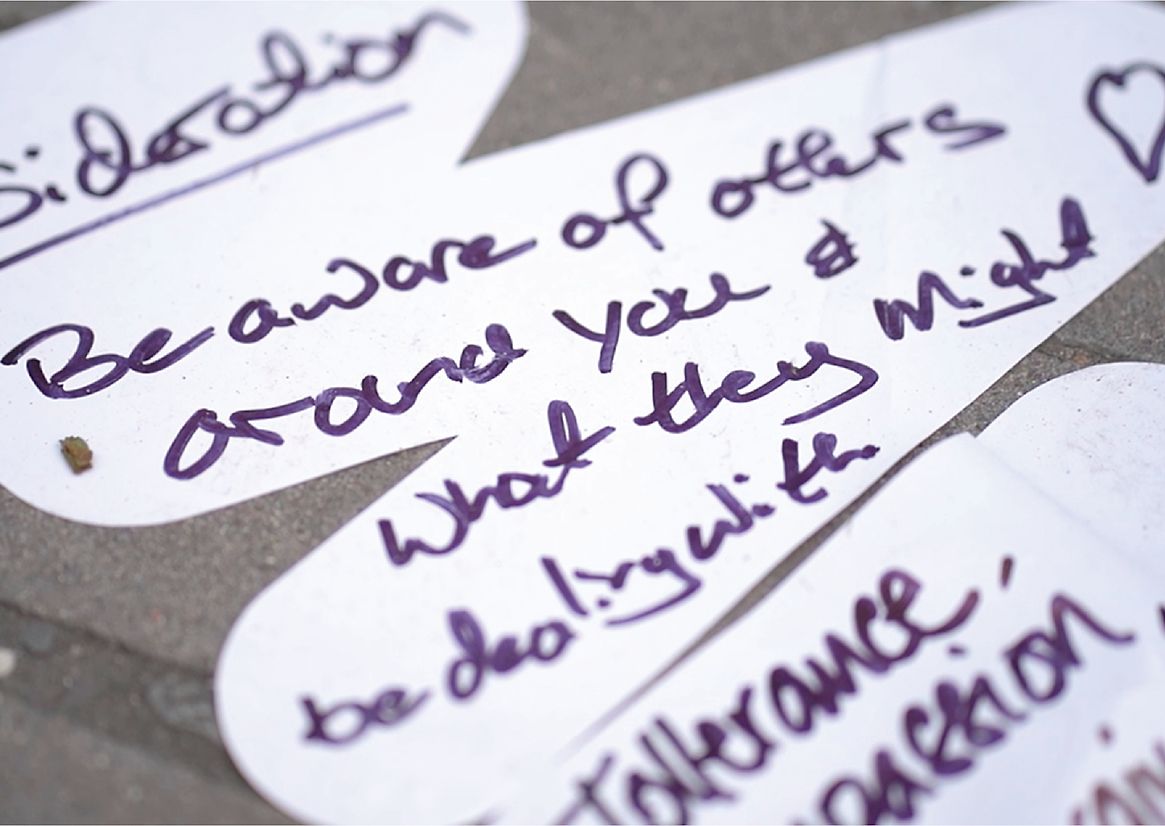 sideration
Be aware of others
around you &
what they might
be dealing with.
Tollerance,
passion